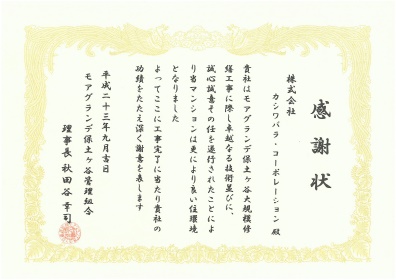 感謝状
株式会社
カシワバラ・コーポレーション殿
貴社はモアグランデ保土ヶ谷大規模修
繕工事に際し卓越なる技術並びに、
誠心誠意その任を遂行されたことによ
り当マンションは更により良い住環境
となりました
よってここに工事完了に当たり貴社の
功績をたたえ深く謝意を表します
平成二十三年九月吉日
モアグランデ保土ヶ谷管理組合
理事長 秋田谷幸司